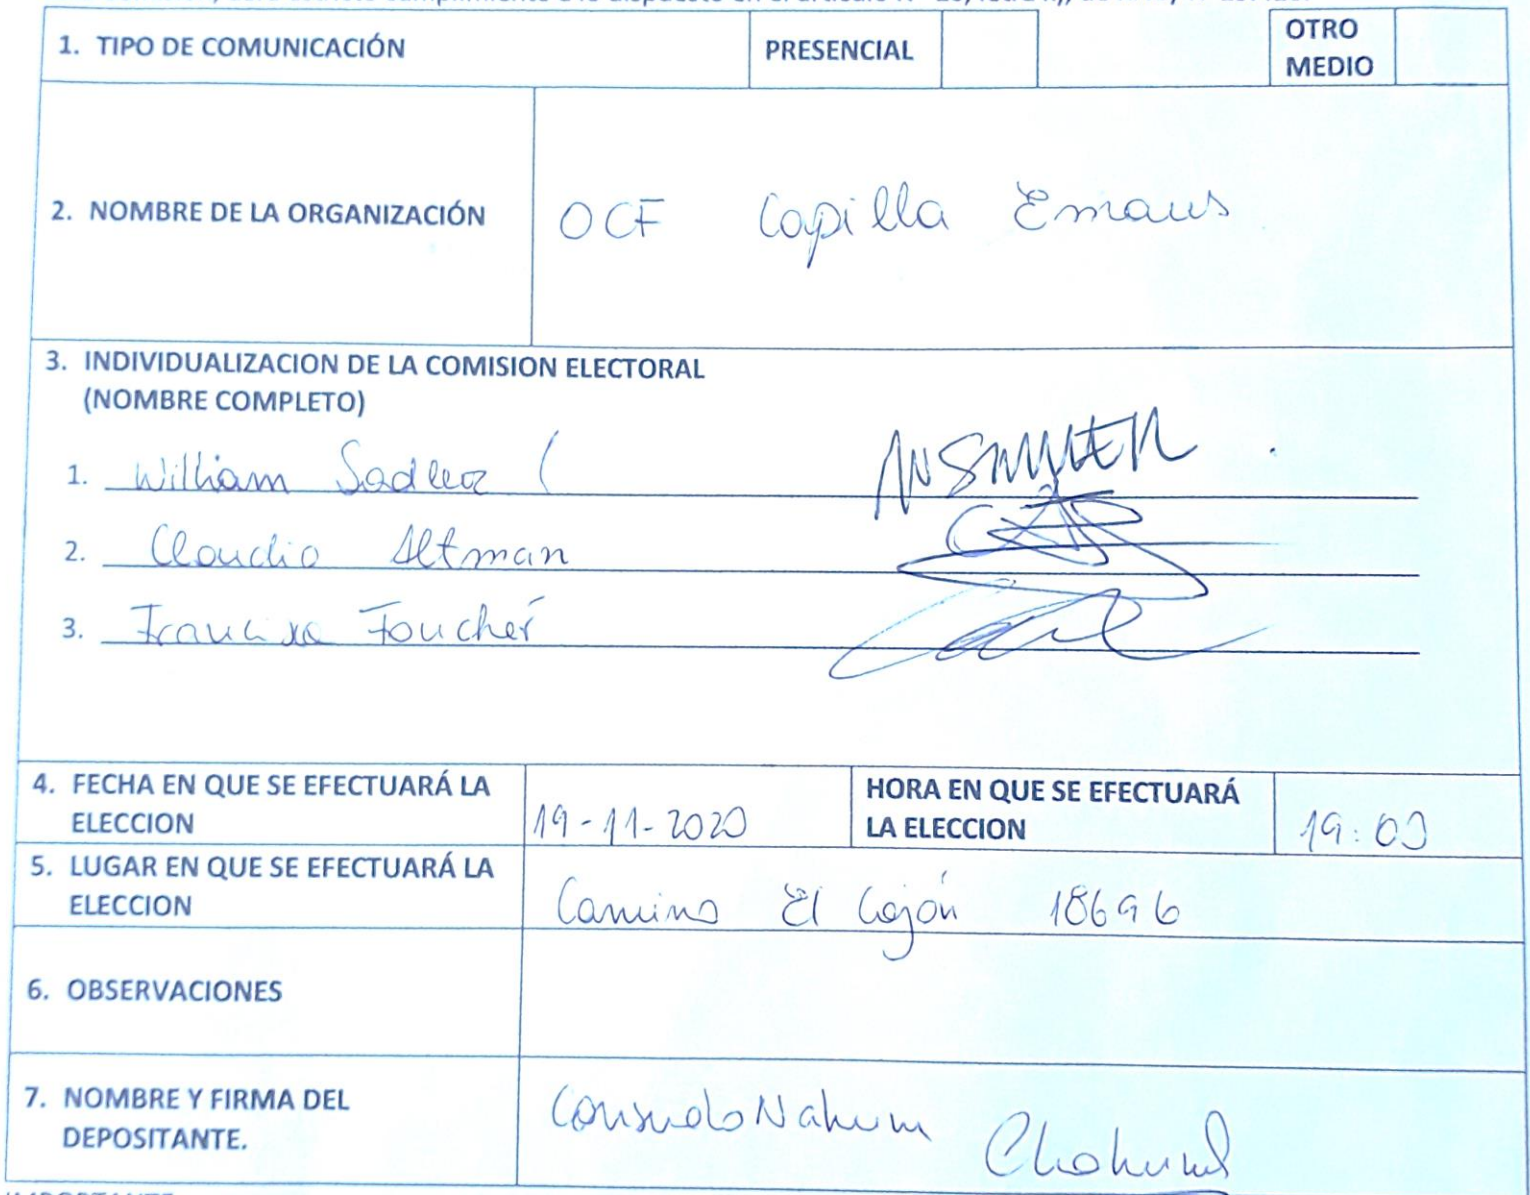 1. TIPO DE COMUNICACIÓN PRESENCIAL OTRO MEDIO
2. NOMBRE DE LA ORGANIZACIÓN OCF Capilla Emaus
3. INDIVIDUALIZACION DE LA COMISION ELECTORAL
(NOMBRE COMPLETO)
1. William Sadler
2. Claudio Altman
3. Francisca Foucher
4. FECHA EN QUE SE EFECTUARÁ LA ELECCION 19-11-2020 HORA EN QUE SE EFECTUARÁ LA ELECCION 19:00
5. LUGAR EN QUE SE EFECTUARÁ LA ELECCION Camino El Cajón 18696
6. OBSERVACIONES
7. NOMBRE Y FIRMA DEL DEPOSITANTE. Consuelo Nahum